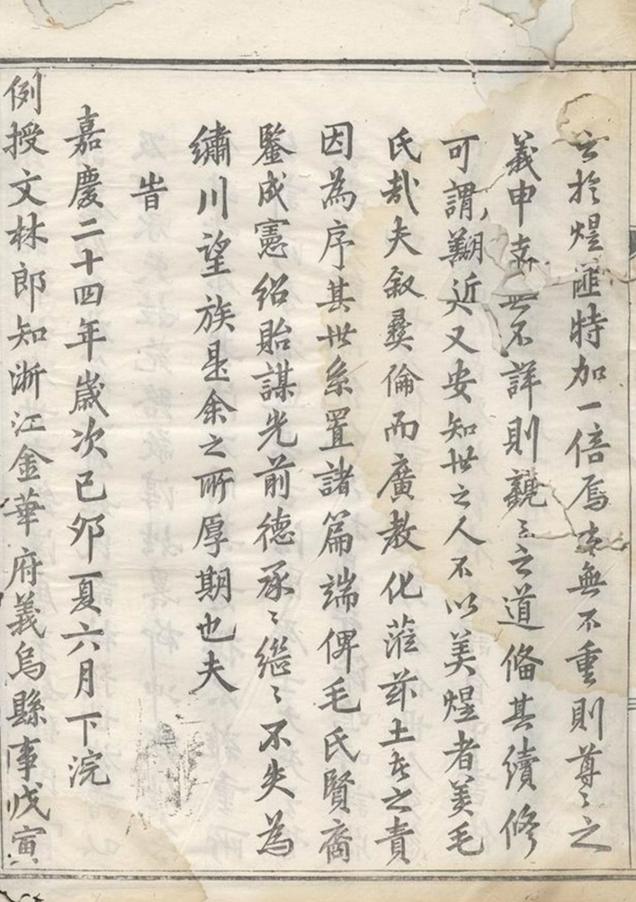 於煜匪特加一倍焉無不重則尊〻之
義申不詳則親〻之道俻其續修
可謂近又安知世之人不以美煜者美毛
氏哉夫叙彝倫而廣教化蒞茲土者之責
因為序其世系置諸篇端俾毛氏賢裔
鑒成憲紹貽謀光前德承〻繼〻不失為
繡川望族是余之所厚期也夫
旹
嘉慶二十四年歲次己夘夏六月下浣
例授文林郎知浙江金華府義烏縣事戊寅